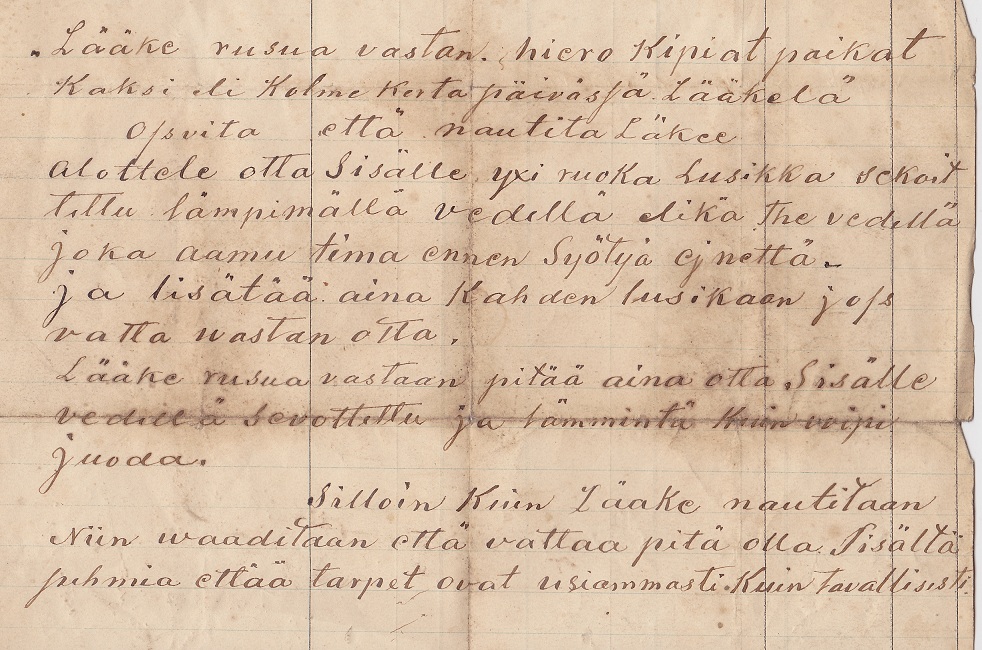 Lääke rusua vastan. hiero Kipiat paikat
Kaksi eli Kolme kerta päivässä Lääkelä
Opvita että nautita Läkee
alottele otta Sisälle yxi ruoka Lusikka sekoit
tettu lämpimällä vedellä elikä The vedellä
joka aamu tima ennen Syötyä ej nettä.
ja lisätää aina Kahden lusikaan jos
vatta wastan otta.
Lääke rusua vastaan pitää aina otta Sisälle
vedellä Sevottettu ja lämmintä Kuin voipi
juoda.
Silloin Kuin Lääke nautitaan
Niin waaditaan että vattaa pitä olla Sisältä
pehmia ettää tarpet ovat usiammasti Kuin tavallisesti.